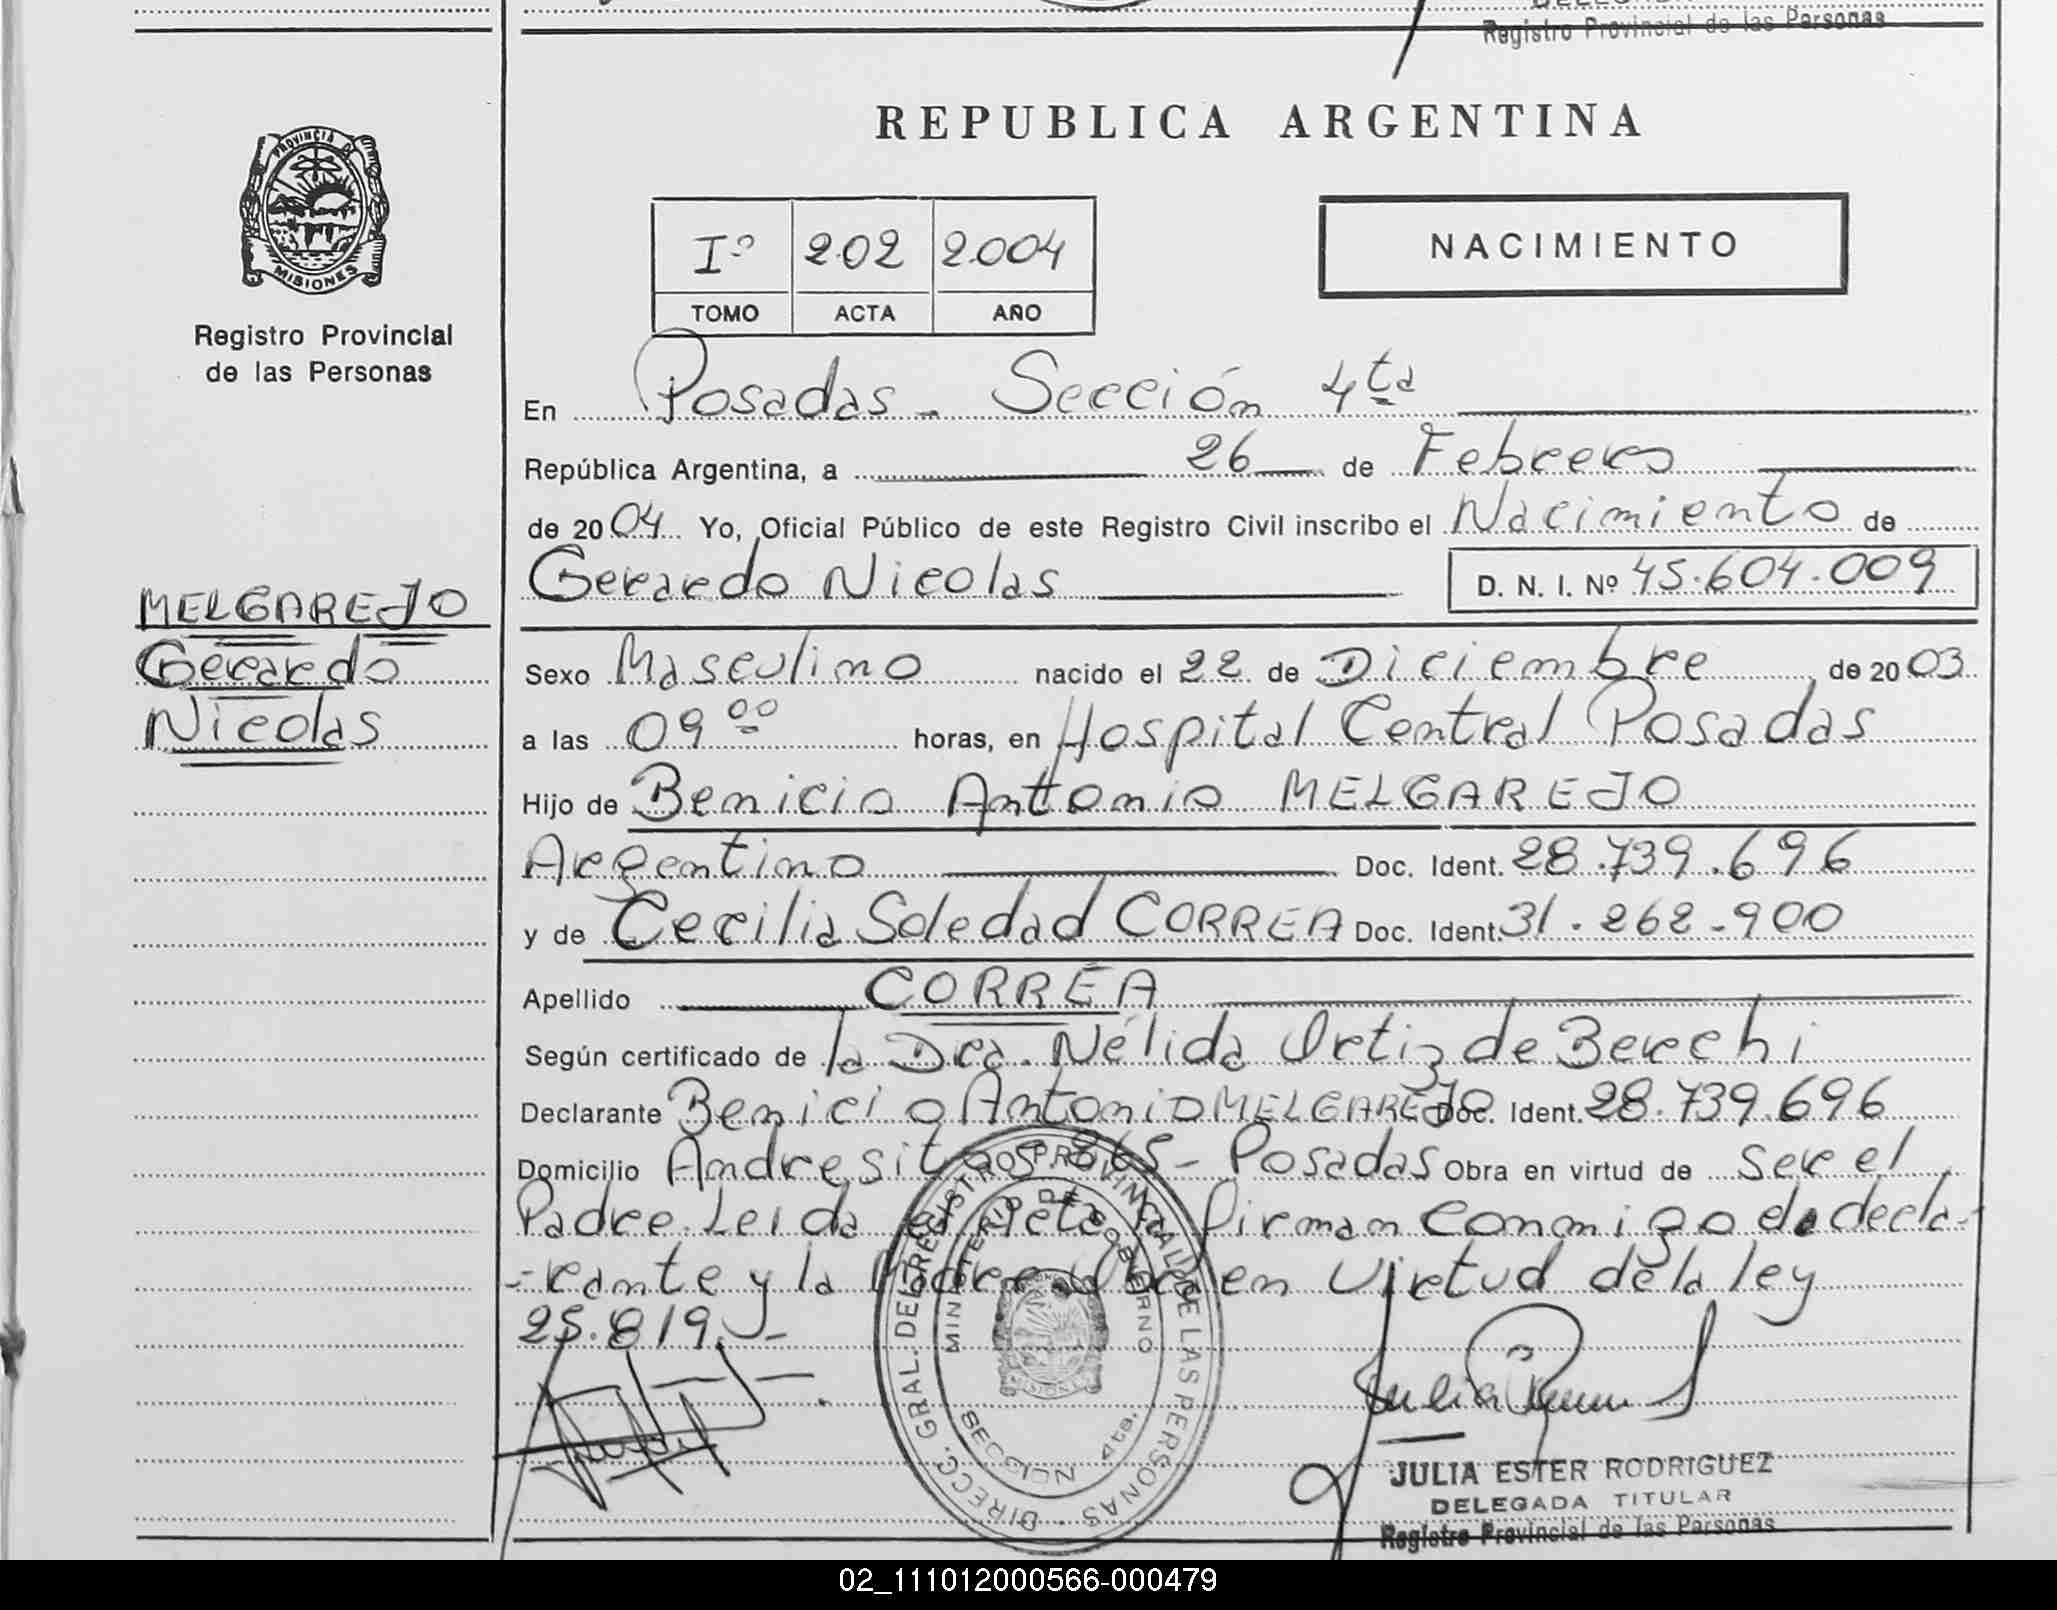 Registro Provincial de las Personas
REPUBLICA ARGENTINA
PROVINCIA DE
MISIONES
Registro Provincial
de las Personas
Iº 202 2.004
TOMO ACTA AÑO
NACIMIENTO
En Posadas - Sección 4ta
República Argentina, a 26 de Febrero
de 2004 Yo, Oficial Público de este Registro Civil inscribo el Nacimiento de
Gerardo Nicolas D. N. I. Nº 45.604.009
MELGAREJO
Gerardo
Nicolas
Sexo Masculino nacido el 22 de Diciembre de 2003
a las 09 00 horas, en Hospital Central Posadas
Hijo de Benicio Antonio MELGAREJO
Argentino Doc. Ident. 28.739.696
y de Cecilia Soledad CORREA Doc. Ident. 31.262.900
Apellido CORREA
Según certificado de la Dra. Nélida Ortiz de Berchi
Declarante Benicio Antonio MELGAREJO Doc. Ident. 28.739.696
Domicilio Andresitos 865 - Posadas Obra en virtud de ser el
Padre. Leida el Acta la firman conmigo el decla-
-rante y la Madre en virtud de la ley
25.819.-
DIRECC. GRAL. DEL REGISTRO PROVINCIAL DE LAS PERSONAS
MINISTERIO DE GOBIERNO
SECCION 4ta.
MISIONES
JULIA ESTER RODRIGUEZ
DELEGADA TITULAR
Registro Provincial de las Personas
02_111012000566-000479